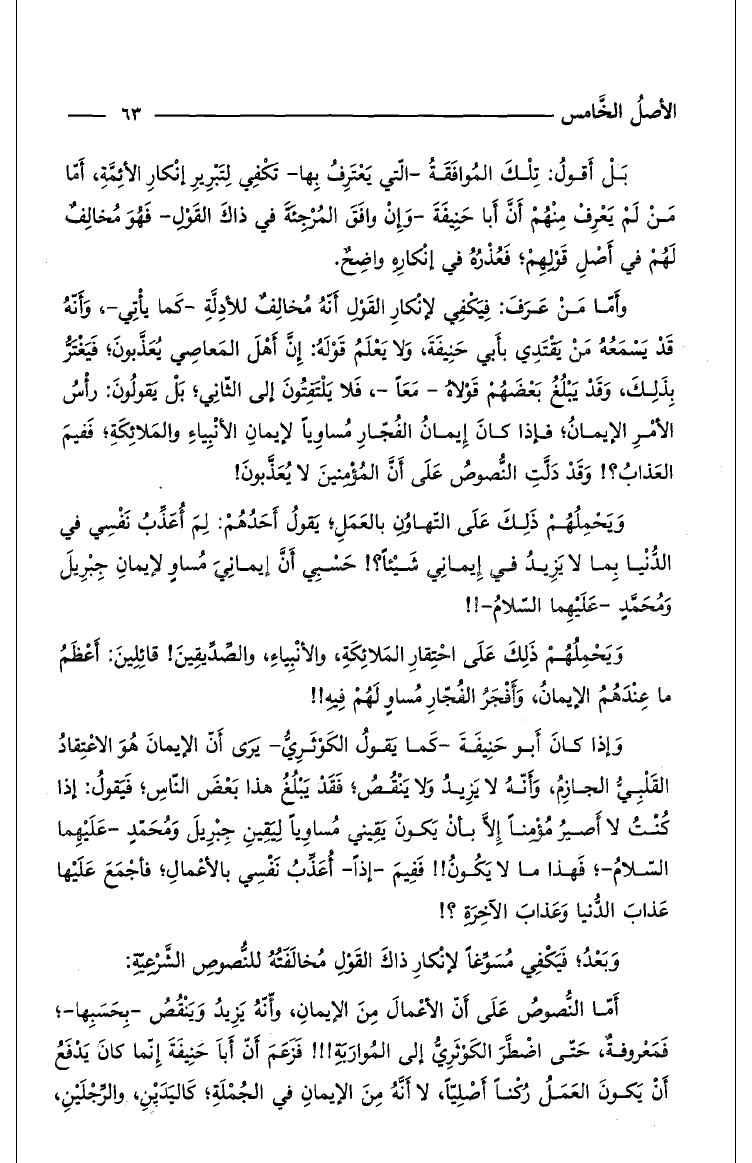 الأصلُ الخَّامس ــــــــ ٦٣ ــــــــ
بَلْ أَقولُ: تِلْكَ المُوافَقَةُ -الّتي يَعْتَرِفُ بِها- تَكْفي لِتَبْرِيرِ إنْكارِ الأئِمَّةِ، أمّا
مَنْ لَمْ يَعْرِفْ مِنْهُمْ أنَّ أبا حَنِيفَةَ -وَإنْ وافَقَ المُرْجِئَةَ في ذاكَ القَوْلِ- فَهُوَ مُخالِفٌ
لَهُمْ في أَصْلِ قَوْلِهِمْ؛ فَعُذْرُهُ في إنْكارِهِ واضِحٌ.
وأَمّا مَنْ عَرَفَ: فيَكْفي لإنْكارِ القَوْلِ أنّهُ مُخالِفٌ للأدِلَّةِ -كَما يأْتي-، وَأنّهُ
قَدْ يَسْمَعُهُ مَنْ يَقْتَدِي بأَبي حَنِيفَةَ، وَلا يَعْلَمُ قَوْلَهُ: إنَّ أَهْلَ المَعاصِي يُعَذَّبونَ؛ فَيَغْتَرُّ
بِذَلِكَ، وَقَدْ يَبْلُغُ بَعْضَهُمْ قَوْلاهُ - مَعَاً -، فَلا يَلْتَفِتُونَ إلى الثّاني؛ بَلْ يَقولُونَ: رأسُ
الأمْرِ الإيمانُ؛ فإذا كانَ إيمانُ الفُجّارِ مُساوِياً لإيمانِ الأنْبِياءِ والمَلائِكَةِ؛ فَفيمَ
العَذابُ؟! وَقَدْ دَلَّتِ النُّصوصُ عَلَى أَنَّ المُؤْمِنينَ لا يُعَذَّبونَ!
وَيَحْمِلُهُمْ ذَلِكَ عَلَى التّهاوُنِ بالعَمَلِ؛ يَقولُ أَحَدُهُمْ: لِمَ أُعَذِّبُ نَفْسِي في
الدُّنْيا بِما لا يَزِيدُ في إيماني شَيْئاً؟! حَسْبِي أَنَّ إيمانيَ مُساوٍ لإيمانِ جِبْرِيلَ
وَمُحَمَّدٍ -عَلَيْهِما السّلامُ-!!
وَيَحْمِلُهُمْ ذَلِكَ عَلَى احْتِقارِ المَلائِكَةِ، والأنْبِياءِ، والصِّدِّيقِينَ! قائِلِينَ: أَعْظَمُ
ما عِنْدَهُمُ الإيمانُ، وَأَفْجَرُ الفُجّارِ مُساوٍ لَهُمْ فِيهِ!!
وَإذا كانَ أَبو حَنِيفَةَ -كَما يَقولُ الكَوْثَرِيُّ- يَرَى أَنّ الإيمانَ هُوَ الاعْتِقادُ
القَلْبِيُّ الجازِمُ، وَأنّهُ لا يَزِيدُ وَلا يَنْقُصُ؛ فَقَدْ يَبْلُغُ هذا بَعْضَ النّاسِ؛ فيَقولُ: إذا
كُنْتُ لا أَصيرُ مُؤْمِناً إلاَّ بأنْ يَكونَ يَقِيني مُساوِياً لِيَقِينِ جِبْرِيلَ وَمُحَمّدٍ -عَلَيْهِما
السّلامُ-؛ فَهَذا ما لا يَكُونُ!! فَفِيمَ -إذاً- أُعَذِّبُ نَفْسِي بالأعْمالِ؛ فأجْمَعَ عَلَيْها
عَذابَ الدُّنيا وَعَذابَ الآخِرَةِ ؟!
وَبَعْدُ؛ فَيَكْفي مُسَوِّغاً لإنْكارِ ذاكَ القَوْلِ مُخالَفَتُهُ للنُّصوصِ الشَّرْعِيّةِ:
أَمّا النُّصوصُ عَلَى أَنّ الأعْمالَ مِنَ الإيمانِ، وأَنّهُ يَزِيدُ وَيَنْقُصُ -بِحَسَبِها-؛
فَمَعْروفةٌ، حَتّى اضْطَّرَ الكَوْثَرِيُّ إلى المُوارَبَةِ!!! فَزَعَمَ أَنّ أَباَ حَنِيفَةَ إنّما كانَ يَدْفَعُ
أَنْ يَكونَ العَمَلُ رُكْناً أَصْلِيّاً، لا أَنَّهُ مِنَ الإيمانِ في الجُمْلَةِ؛ كَاليَدَيْنِ، والرِّجْلَيْنِ،